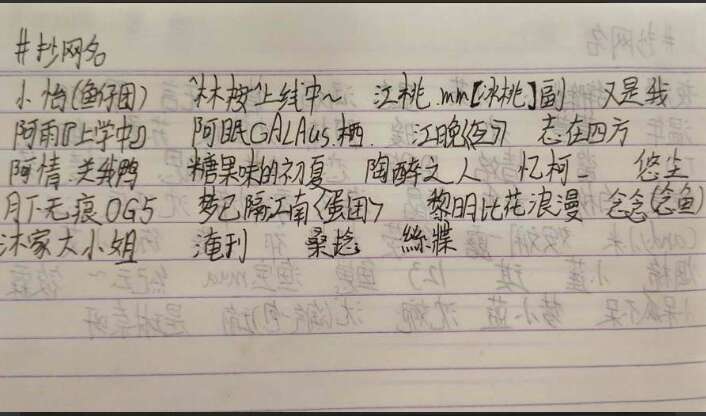 #抄网名
小怡(鱼仔团) 林桉上线中~ 江桃.mm【冰桃】副 又是我
阿雨『上学中』 阿眠GALAus.栖. 江晚 志在四方
阿情.关我鸭 糖果味的初夏 陶醉文人 忆柯_ 悠尘
月下无痕OG5 梦已隔江南<蛋团> 黎明比花浪漫 念念(念鱼)
沐家大小姐 淹刋 桑捻 絲牒